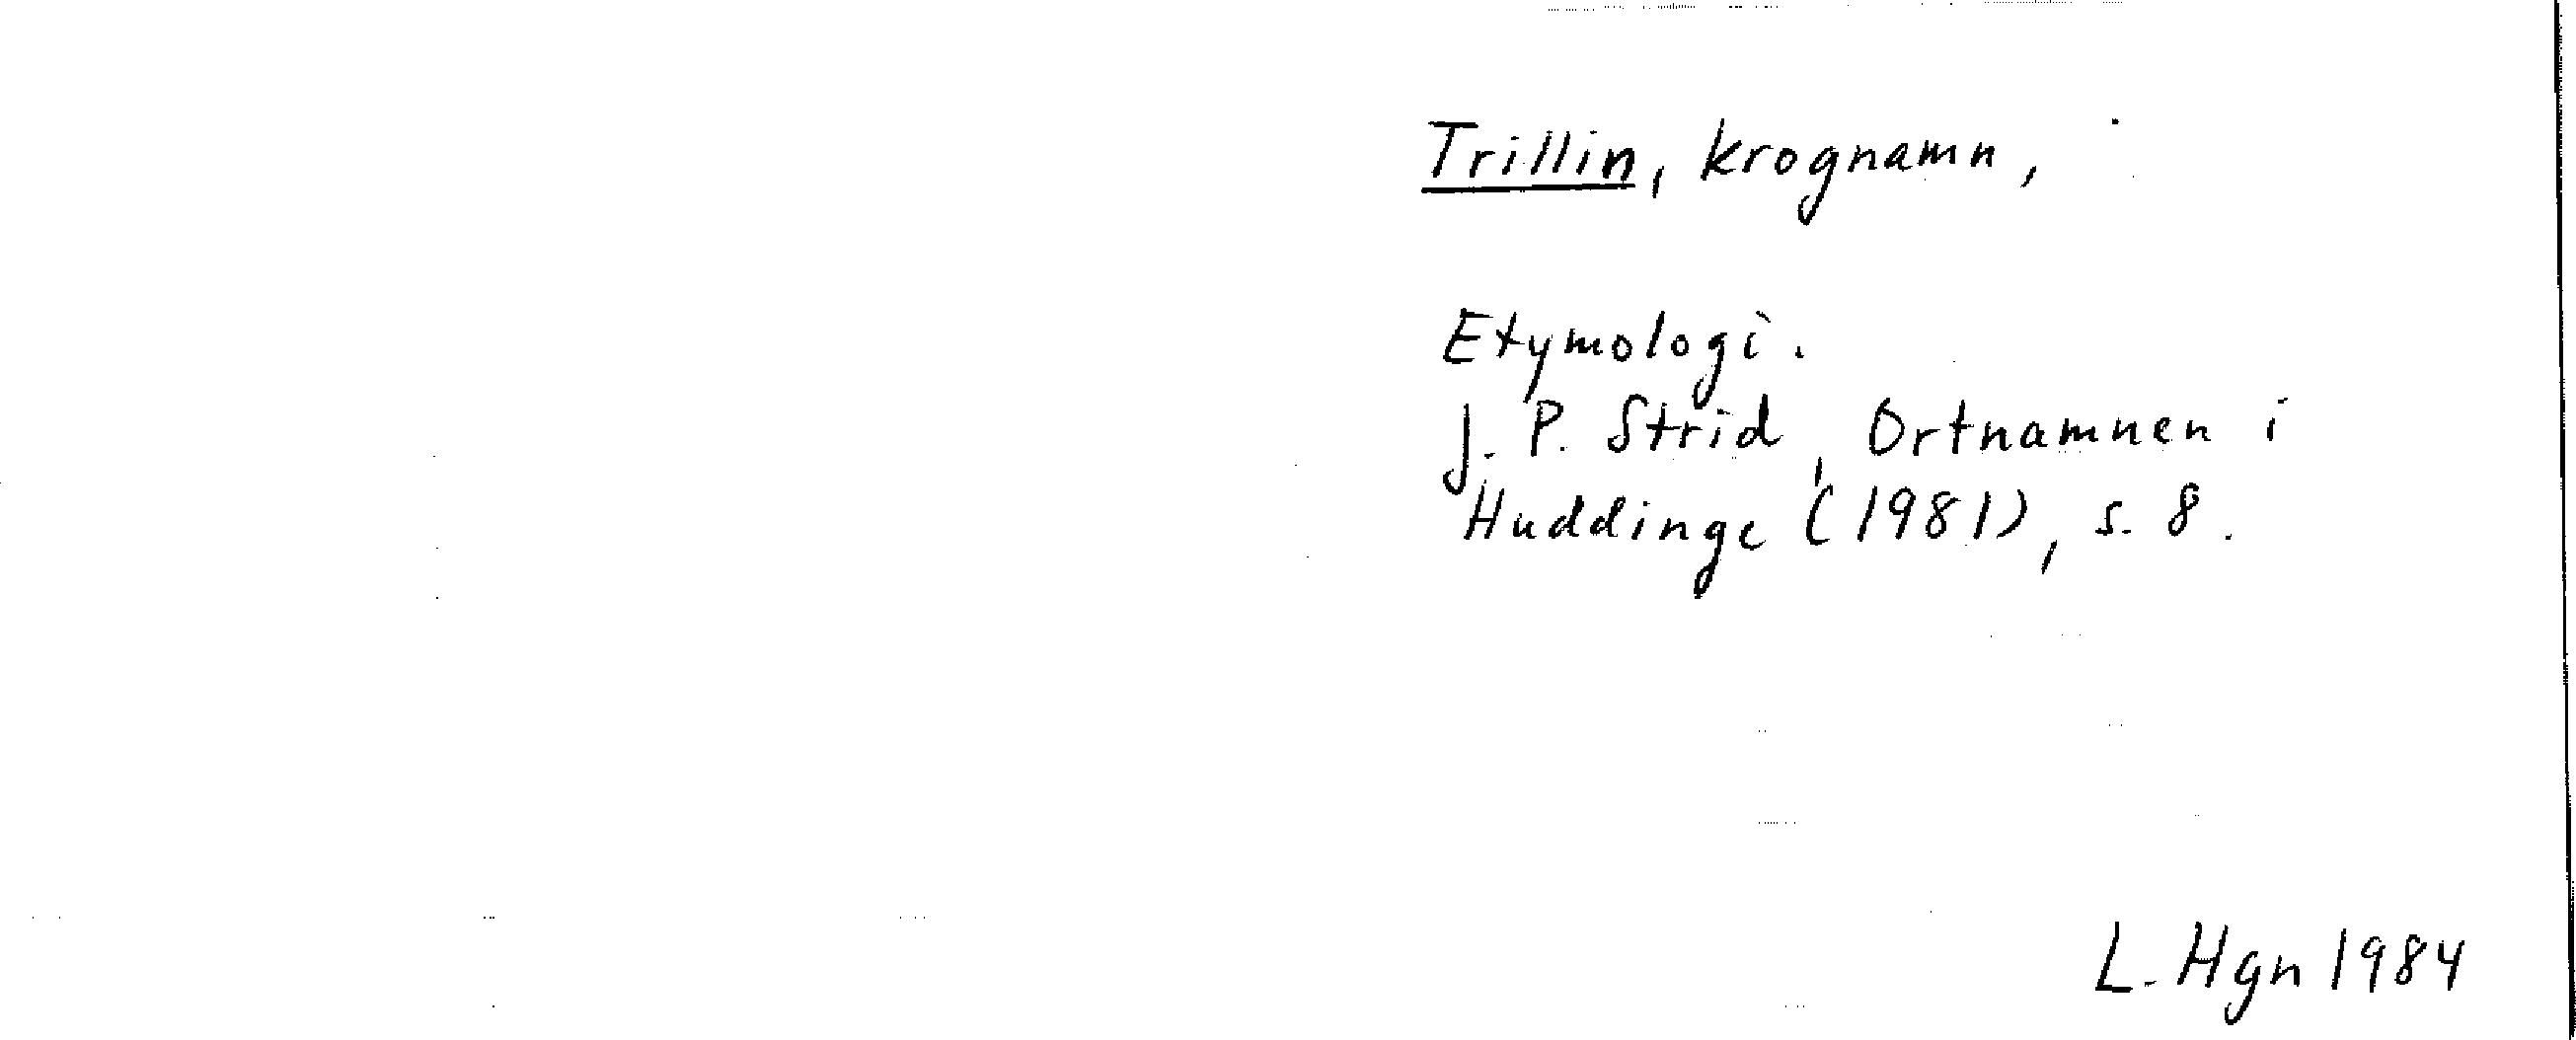 Trillin, krognamn,
Etymologi.
J. P. Strid, Ortnamnen i
Huddinge (1981), s. 8.
L. Hgn 1984